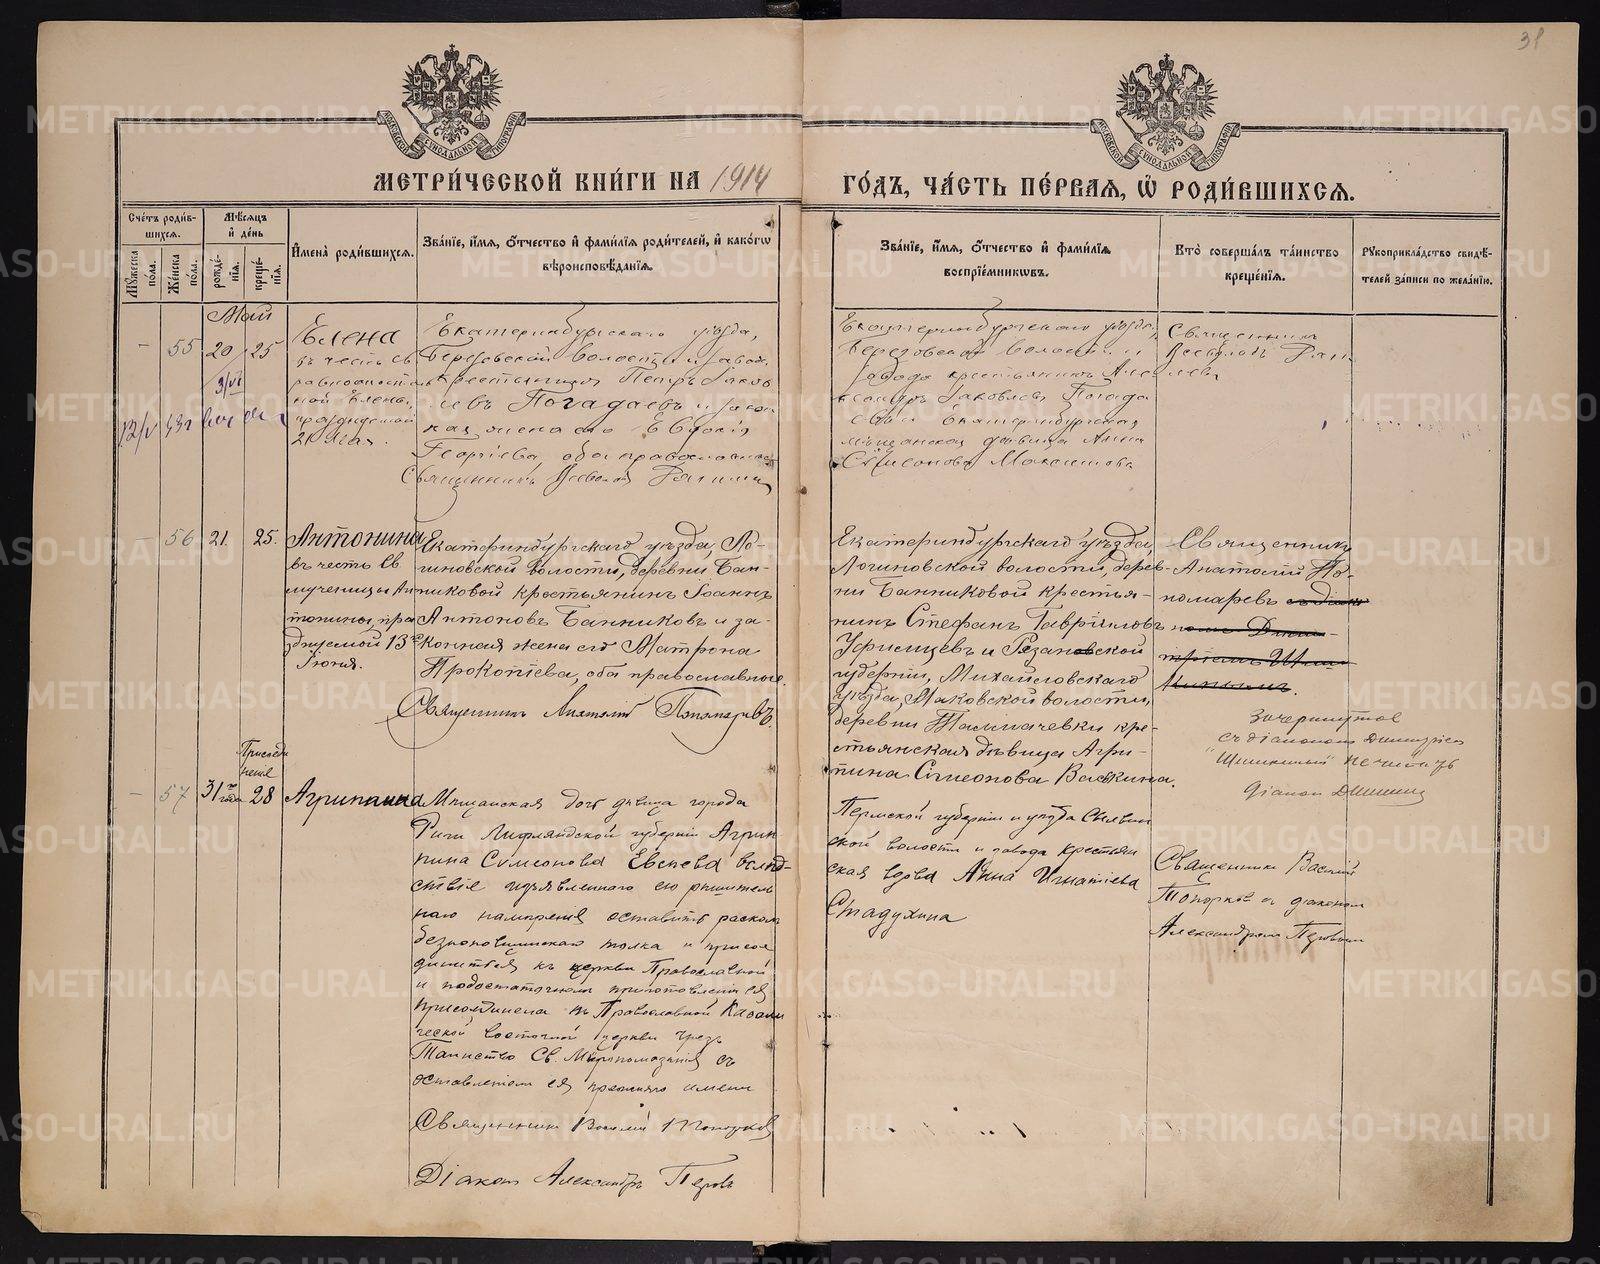 31
МОСКОВСКОЙ СѴНОДАЛЬНОЙ ТИПОГРАФІИ
МОСКОВСКОЙ СѴНОДАЛЬНОЙ ТИПОГРАФІИ
МЕТРИ́ЧЕСКОЙ КНИ́ГИ НА 1914
ГО́ДЪ, ЧА́СТЬ ПЕ́РВАЯ, Ѡ҆ РОДИ́ВШИХСЯ.
Сче́тъ роди́в-
шихся.
Мѣ́сяцъ
и҆ де́нь
Мꙋ́жеска по́ла.
Же́нска по́ла.
рожде́-
нїѧ.
креще́-
нїѧ.
И҆мена̀ роди́вшихся.
Зва́нїе, и҆́мя, ѻ҆́тчество и҆ фами́лїя роди́телей, и҆ како́гѡ
вѣроисповѣ́данїя.
Зва́нїе, и҆́мя, ѻ҆́тчество и҆ фами́лїя
воспрїе́мникѡвъ.
Кто̀ соверша́лъ та́инство
креще́нїя.
Рꙋкоприкла́дство свидѣ́-
телей за́писи по жела́нїю.
Май
- 55 20 25
Елена
въ честь св
равноапостол
ной Елены,
празднуемой
21 Мая.
Екатеринбургскаго уѣзда,
Березовской волости и завод.
крестьянинъ Петръ Іаков
левъ Погадаевъ и закон
ная жена его Евдокія
Георгіева, оба православные
Священникъ Всеволод
Екатеринбургскаго уѣзда,
Березовской волости и
завода крестьянинъ Але
ксандръ Іаковлев Погада
евъ и Екатеринбургская
мѣщанская дѣвица Анна
Симеонова Максимова
Священникъ
Всеволодъ
- 56 21. 25.
Антонина
въ честь Св
мученицы Ан
тонины, пра
зднуемой 13го
Іюня.
Екатеринбургскаго уѣзда, Ло-
гиновской волости, деревни Бан-
никовой крестьянинъ Іоаннъ
Антоновъ Банниковъ и за-
конная жена его Матрона
Прокопіева, оба православные.
Священникъ Анатолій Пономаревъ.
Екатеринбургскаго уѣзда,
Логиновской волости, дерев-
ни Банниковой крестья-
нинъ Стефанъ Гавриловъ
Уфимцевъ и Рязановской
губерніи, Михайловскаго
уѣзда, Маковской волости,
деревни Толмачевки кре-
стьянская дѣвица Агри-
пина Симеонова Васкина.
Священникъ
Анатолій По-
номаревъ
Зачеркнутое
съ діакономъ Димитріем
Шишкинымъ не читать
Діакон
Присоеди
неніе
- 57 31го года 28
Агрипина
Мѣщанская дочь дѣвица города
Риги Лифляндской губерніи Агрип
пина Симеонова Евсеева вслѣд-
ствіе изъявленнаго ею рѣшитель
наго намѣренія оставить раскол
безпоповщинскаго толка и присое
диниться къ церкви Православной
и по достаточном приготовленіи ея
присоединена къ Православной Каѳоли
ческой восточной церкви чрезъ
Таинство Св. Мѵропомазанія съ
оставленіем ея прежняго имени
Священникъ Василій Топорков
Діаконъ Александръ Перовъ
Пермской губерніи и уѣзда Сылвин
ской волости и завода крестьян
ская вдова Анна Игнатіева
Стадухина
Священникъ Василій
Топорков съ діаконом
Александромъ Перовым
METRIKI.GASO-URAL.RU